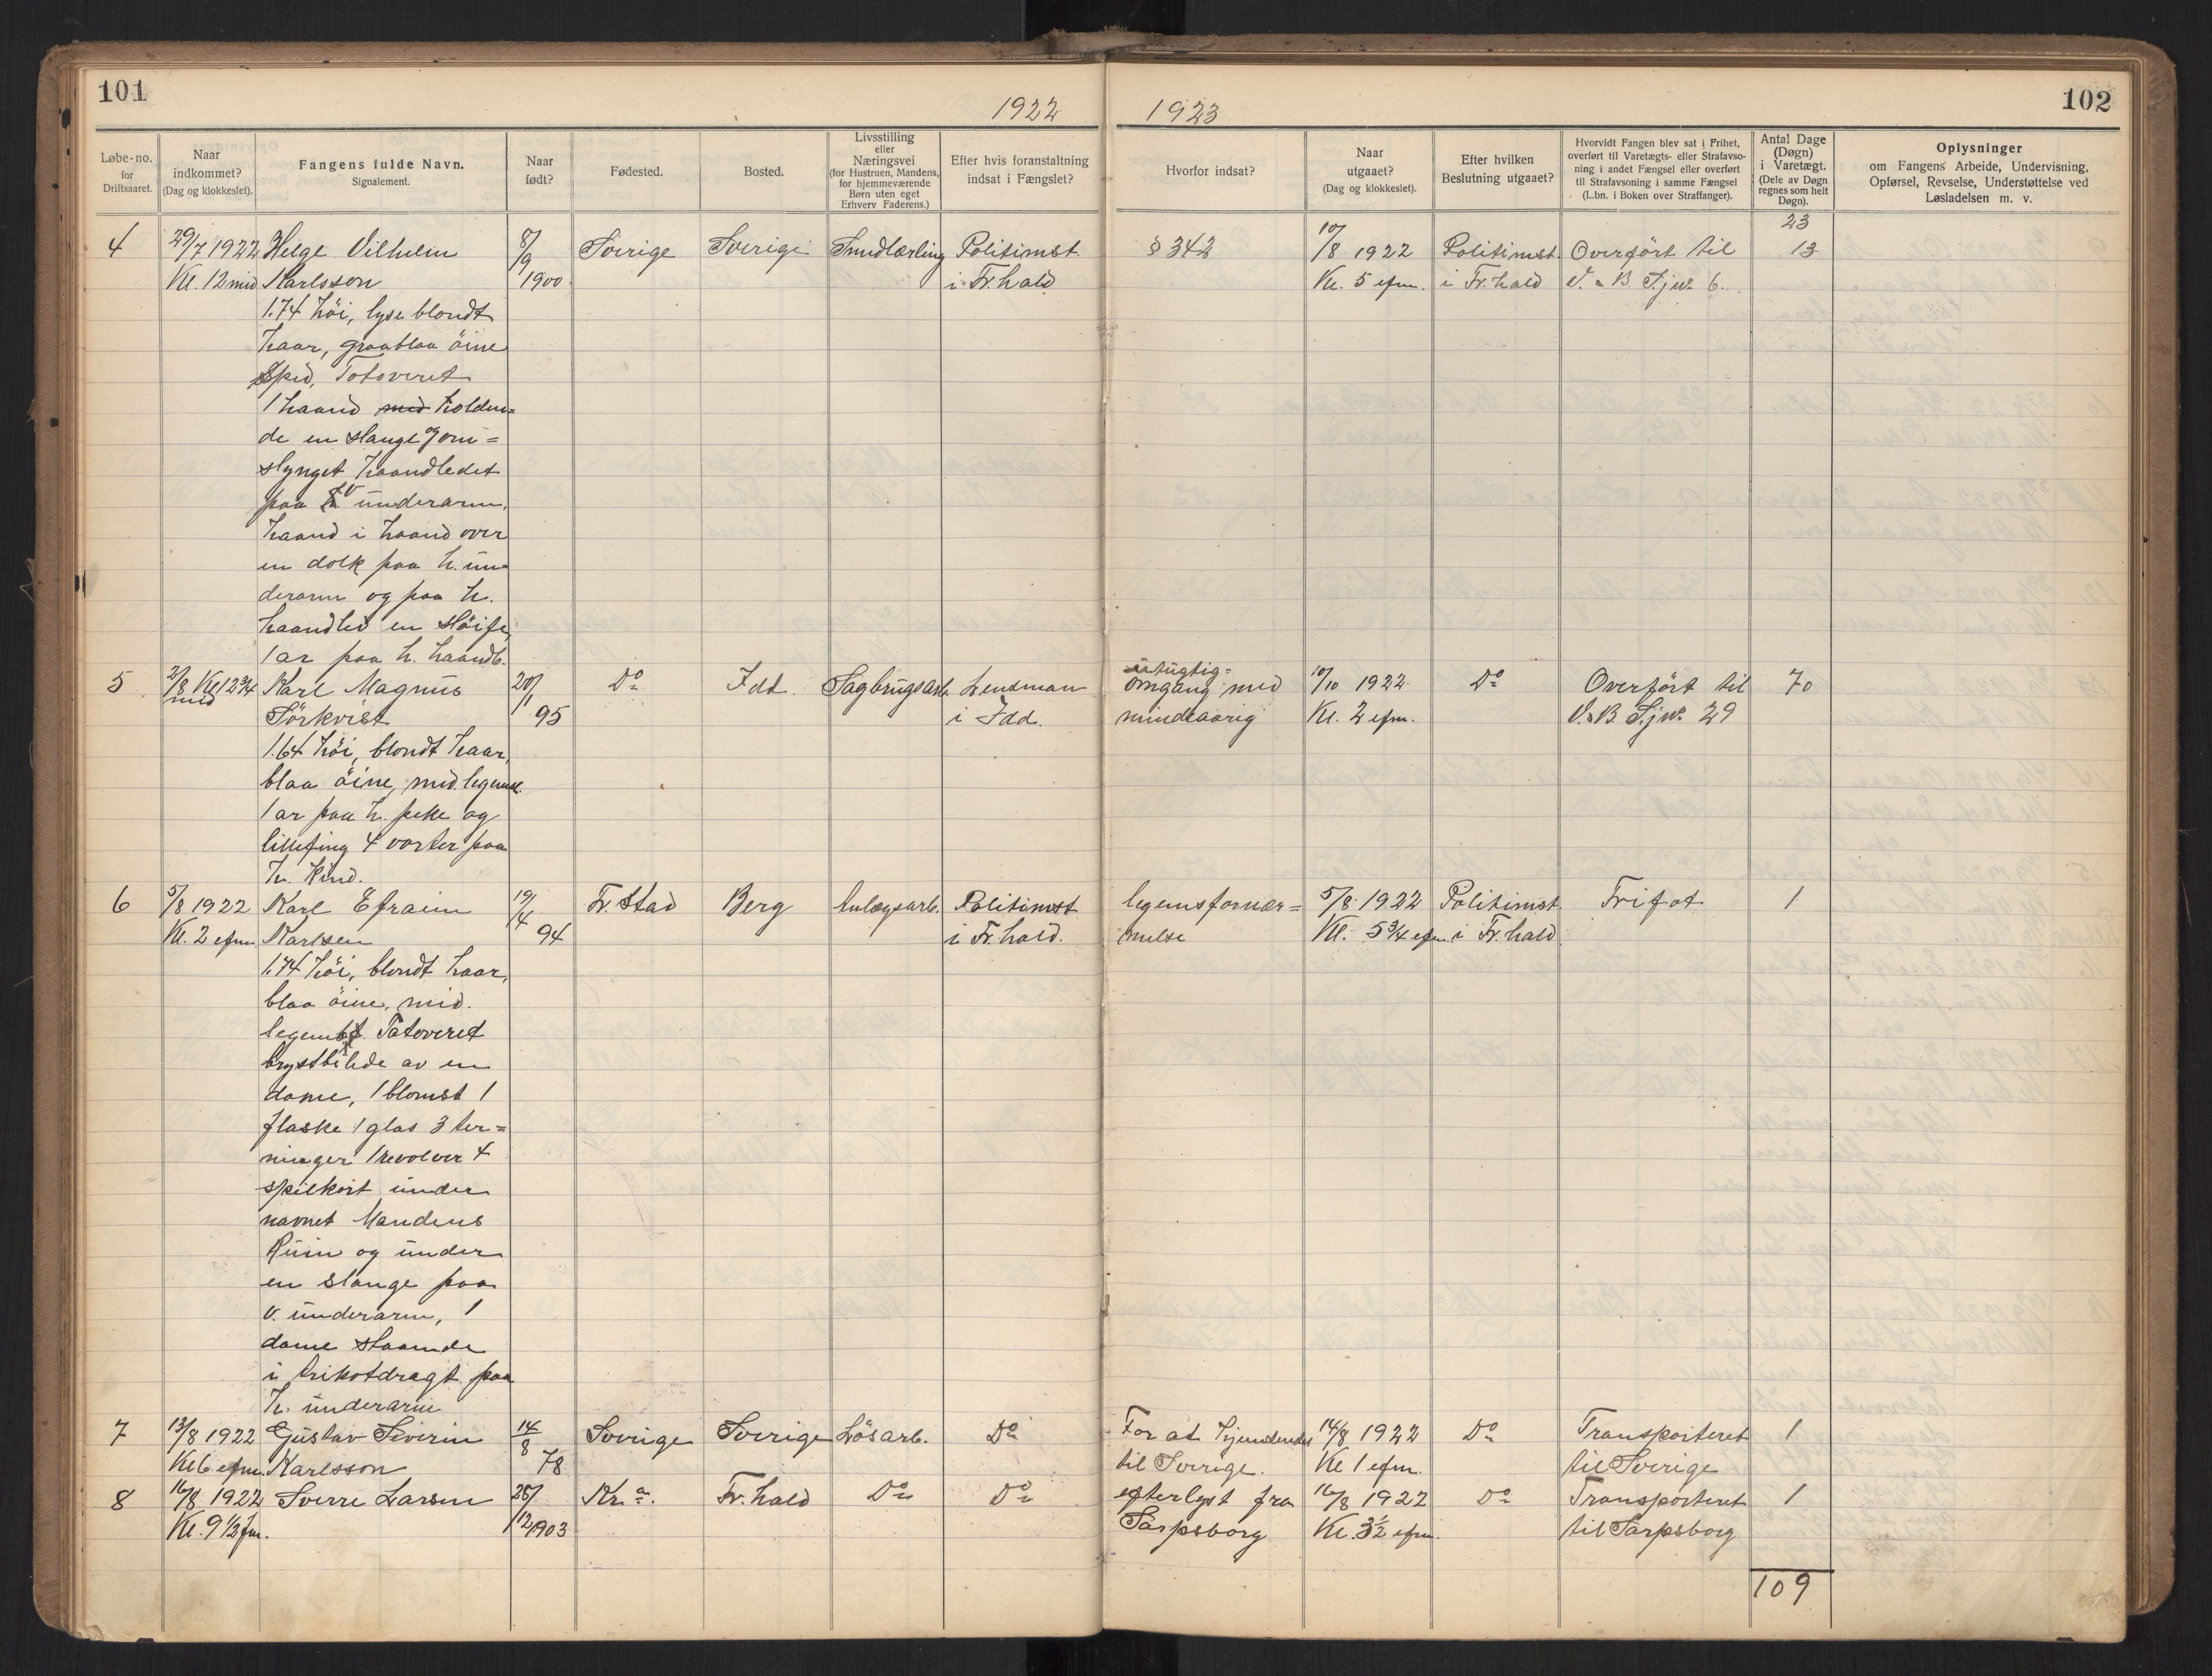 101
1922
Løbe-no.
for
Driftsaaret.
Naar
indkommet?
(Dag og klokkeslet).
Fangens fulde Navn.
Signalement.
Naar
født?
Fødested.
Bosted.
Livsstilling
eller
Næringsvei
(for Hustruen, Mandens,
for hjemmeværende
Børn uten eget
Erhverv Faderens.)
Efter hvis foranstaltning
indsat i Fængslet?
4
29/7 1922
Kl. 12 mid
Helge Vilhelm
Karlsson
1.74 höi, lyse blondt
haar, graablaa öine
Spid, Totoveret
1 haand holden=
de en slange og om=
slynget haandledet
paa v underarm,
haand i haand over
en dolk paa h. un=
derarm og paa h.
haandled en slöife,
1 ar paa h. haandl.
8/9
1900
Sverige
Sverige
Smedlærling
Politimst.
i Fr.hald
5
2/8 Kl 12 3/4
mid
Karl Magnus
Sörkvist
1.64 höi, blondt haar,
blaa öine, mid. legeme.
1 ar paa h. peke og
lillefing 4 vorter paa
h. Kind.
20/1
95
Do
Idd.
Sagbrugsarb.
Lensman
i Idd.
6
5/8 1922
Kl. 2 efm.
Karl Efraim
Karlsen
1.74 höi, blondt haar,
blaa öine, mid.
legembf. Tatoveret
brystbilede av en
dame, 1 blomst 1
flaske 1 glas 3 ter=
ninger 1 revolver 4
spilkort under
navnet Mandens
Ruin og under
en slange paa
v. underarm, 1
dame staaende
i trikotdragt paa
h. underarm
19/4
94
Fr. Stad
Berg
Anlægsarb.
Politimst
i Fr.hald.
7
13/8 1922
Kl 6 efm.
Gustav Severin
Karlsson
14/8
78
Sverige
Sverige
Lösarb.
Do
8
16/8 1922
Kl. 9 1/2 fm.
Sverre Larsen
28/12
1903
Kr.a.
Fr.hald
Do
Do
102
1923
Hvorfor indsat?
Naar
utgaaet?
(Dag og klokkeslet).
Efter hvilken
Beslutning utgaaet?
Hvorvidt Fangen blev sat i Frihet,
overført til Varetægts- eller Strafavso-
ning i andet Fængsel eller overført
til Strafavsoning i samme Fængsel
(L.bn. i Boken over Straffanger).
Antal Dage
(Døgn)
i Varetægt.
(Dele av Døgn
regnes som helt
Døgn).
Oplysninger
om Fangens Arbeide, Undervisning,
Opførsel, Revselse, Understøttelse ved
Løsladelsen m. v.
23
§ 342
10/8 1922
Kl. 5 efm.
Politimst.
i Fr.hald
Overfört til
V. & B. Fj no. 6.
13
utugtig=
omgang med
mindeaarig
10/10 1922
Kl. 2 efm.
Do
Overfört til
V. & B. Fj no. 29
70
legemsfornær=
melse
5/8 1922
Kl. 5 3/4 efm.
Politimst.
i Fr. hald
Frifot
1
For at hjemsendes
til Sverige.
14/8 1922
Kl 1 efm.
Do
Transporteret
til Sverige
1
efterlyst fra
Sarpsborg
16/8 1922
Kl. 3 1/2 efm.
Do
Transporteret
til Sarpsborg
1
109